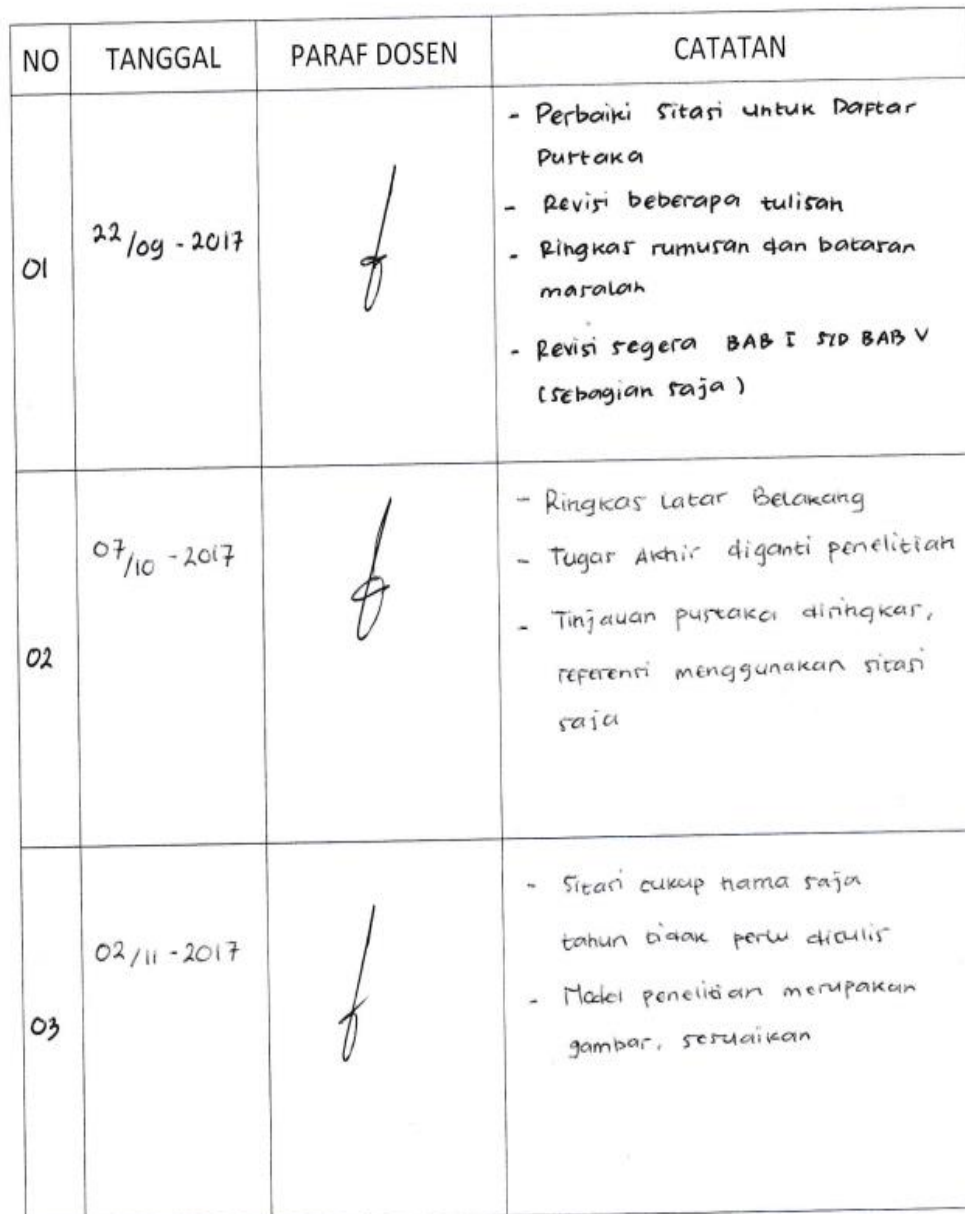 NO TANGGAL PARAF DOSEN CATATAN
01
22/09 - 2017
- Perbaiki Sitasi untuk Daftar
Pustaka
- Revisi beberapa tulisan
- Ringkas rumusan dan batasan
masalah
- Revisi segera BAB I S/D BAB V
(sebagian saja)
02
07/10 - 2017
- Ringkas Latar Belakang
- Tugas Akhir diganti penelitian
- Tinjauan pustaka diringkas,
referensi menggunakan sitasi
saja
03
02/11 - 2017
- Sitasi cukup nama saja
tahun tidak perlu ditulis
- Model penelitian merupakan
gambar, sesuaikan